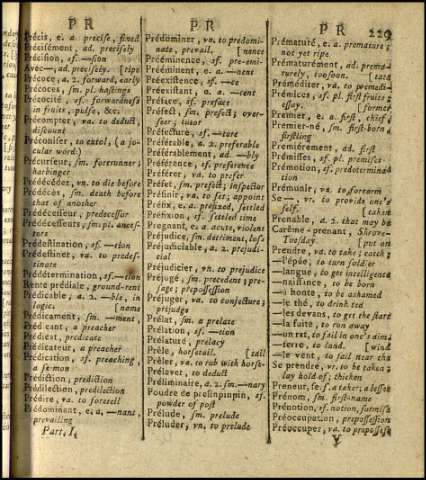 P R
P R
P R
229
Précis, e. a. precise, fined
Précisément, ad. precisely
Précision, sf. —sion
Avec—, ad. precisely. [ripe
Précoce, a. 2. forward, early
Précoces, sm. pl. hastings
Précocité, sf. forwardness
in fruit, pulse, &c.
Précompter, va. to deduct,
discount
Préconiser, to extol, (a jo-
cular word.)
Précurseur, sm. forerunner;
harbinger
Prédécéder, vn. to die before
Prédécès, sm. death before
that of another
Prédécesseur, predecessor
Prédécesseurs, sm. pl. ances-
tors
Prédestination, sf. —tion
Prédestiner, va. to predes-
tinate
Prédétermination, sf. —tion
Rente prédiale, ground-rent
Prédicable, a. 2. —ble, in
logic [name
Prédicament, sm. —ment,
Prédicant, a preacher
Prédicat, predicate
Prédicateur, a preacher
Prédication, sf. preaching,
a sermon
Prédiction, prediction
Prédilection, predilection
Prédire, va. to foretell
Prédominent, e. a. —nant,
prevailing
Part. I.
Prédominer, va. to predomi-
nate, prevail. [nence
Prééminence, sf. pre-emi-
Prééminent, e. a. —nent
Préexistence, sf. —ce
Préexistant, e. a. —cent
Préface, sf. preface
Préfect, sm. prefect; over-
seer; tutor
Préfecture, sf. —ture
Préférable, a. 2. preferable
Préférablement, ad. —bly
Préférence, sf. preference
Préférer, va. to prefer
Préfet, sm. prefect; inspector
Préfinir, va. to set; appoint
Préfix, e. a. prefixed, settled
Préfixion, sf. settled time
Pregnant, e. a. acute, violent
Préjudice, sm. detriment, loss
Préjudiciable, a. 2. prejudi-
cial
Préjudicier, vn. to prejudice
Préjugé, sm. precedent; pre-
sage; prepossession
Préjuger, va. to conjecture;
prejudge
Prélat, sm. a prelate
Prélation, sf. —tion
Prélature, prelacy
Prêle, horsetail. [tail
Prêler, va. to rub with horse-
Prélever, to deduct
Préliminaire, a. 2. sm. —nary
Poudre de prelinpinpin, sf.
powder of post
Prélude, sm. prelude
Préluder, vn. to prelude
Prématuré, e. a. premature;
not yet ripe
Prématurément, ad. prema-
turely, too soon. [tate
Préméditer, va. to premedi-
Prémices, sf. pl. first fruits;
essay. [former
Premier, e. a. first, chief,
Premier-né, sm. first-born,
firstling
Premiérement, ad. first
Prémisses, sf. pl. premises
Prémotion, sf. predetermina-
tion
Prémunir, va. to forearm
Se —, vr. to provide one's
self. [taken
Prenable, a. 2. that may be
Carême-prenant, Shrove-
Tuesday [put on
Prendre, va. to take; catch;
—l'épée, to turn soldier
—langue, to get intelligence
—naissance, to be born
—à honte, to be ashamed
—le thé, to drink tea
—les devans, to get the start
—la fuite, to run away
—un rat, to fail in one's aim
—terre, to land. [wind
—le vent, to sail near the
Se prendre, vr. to be taken;
lay hold of; thicken
Preneur, se, s. a taker; a lessee
Prénom, sm. first-name
Prénotion, sf. notion, surmise
Préoccupation, prepossession
Préoccuper, va. to prepossess
V